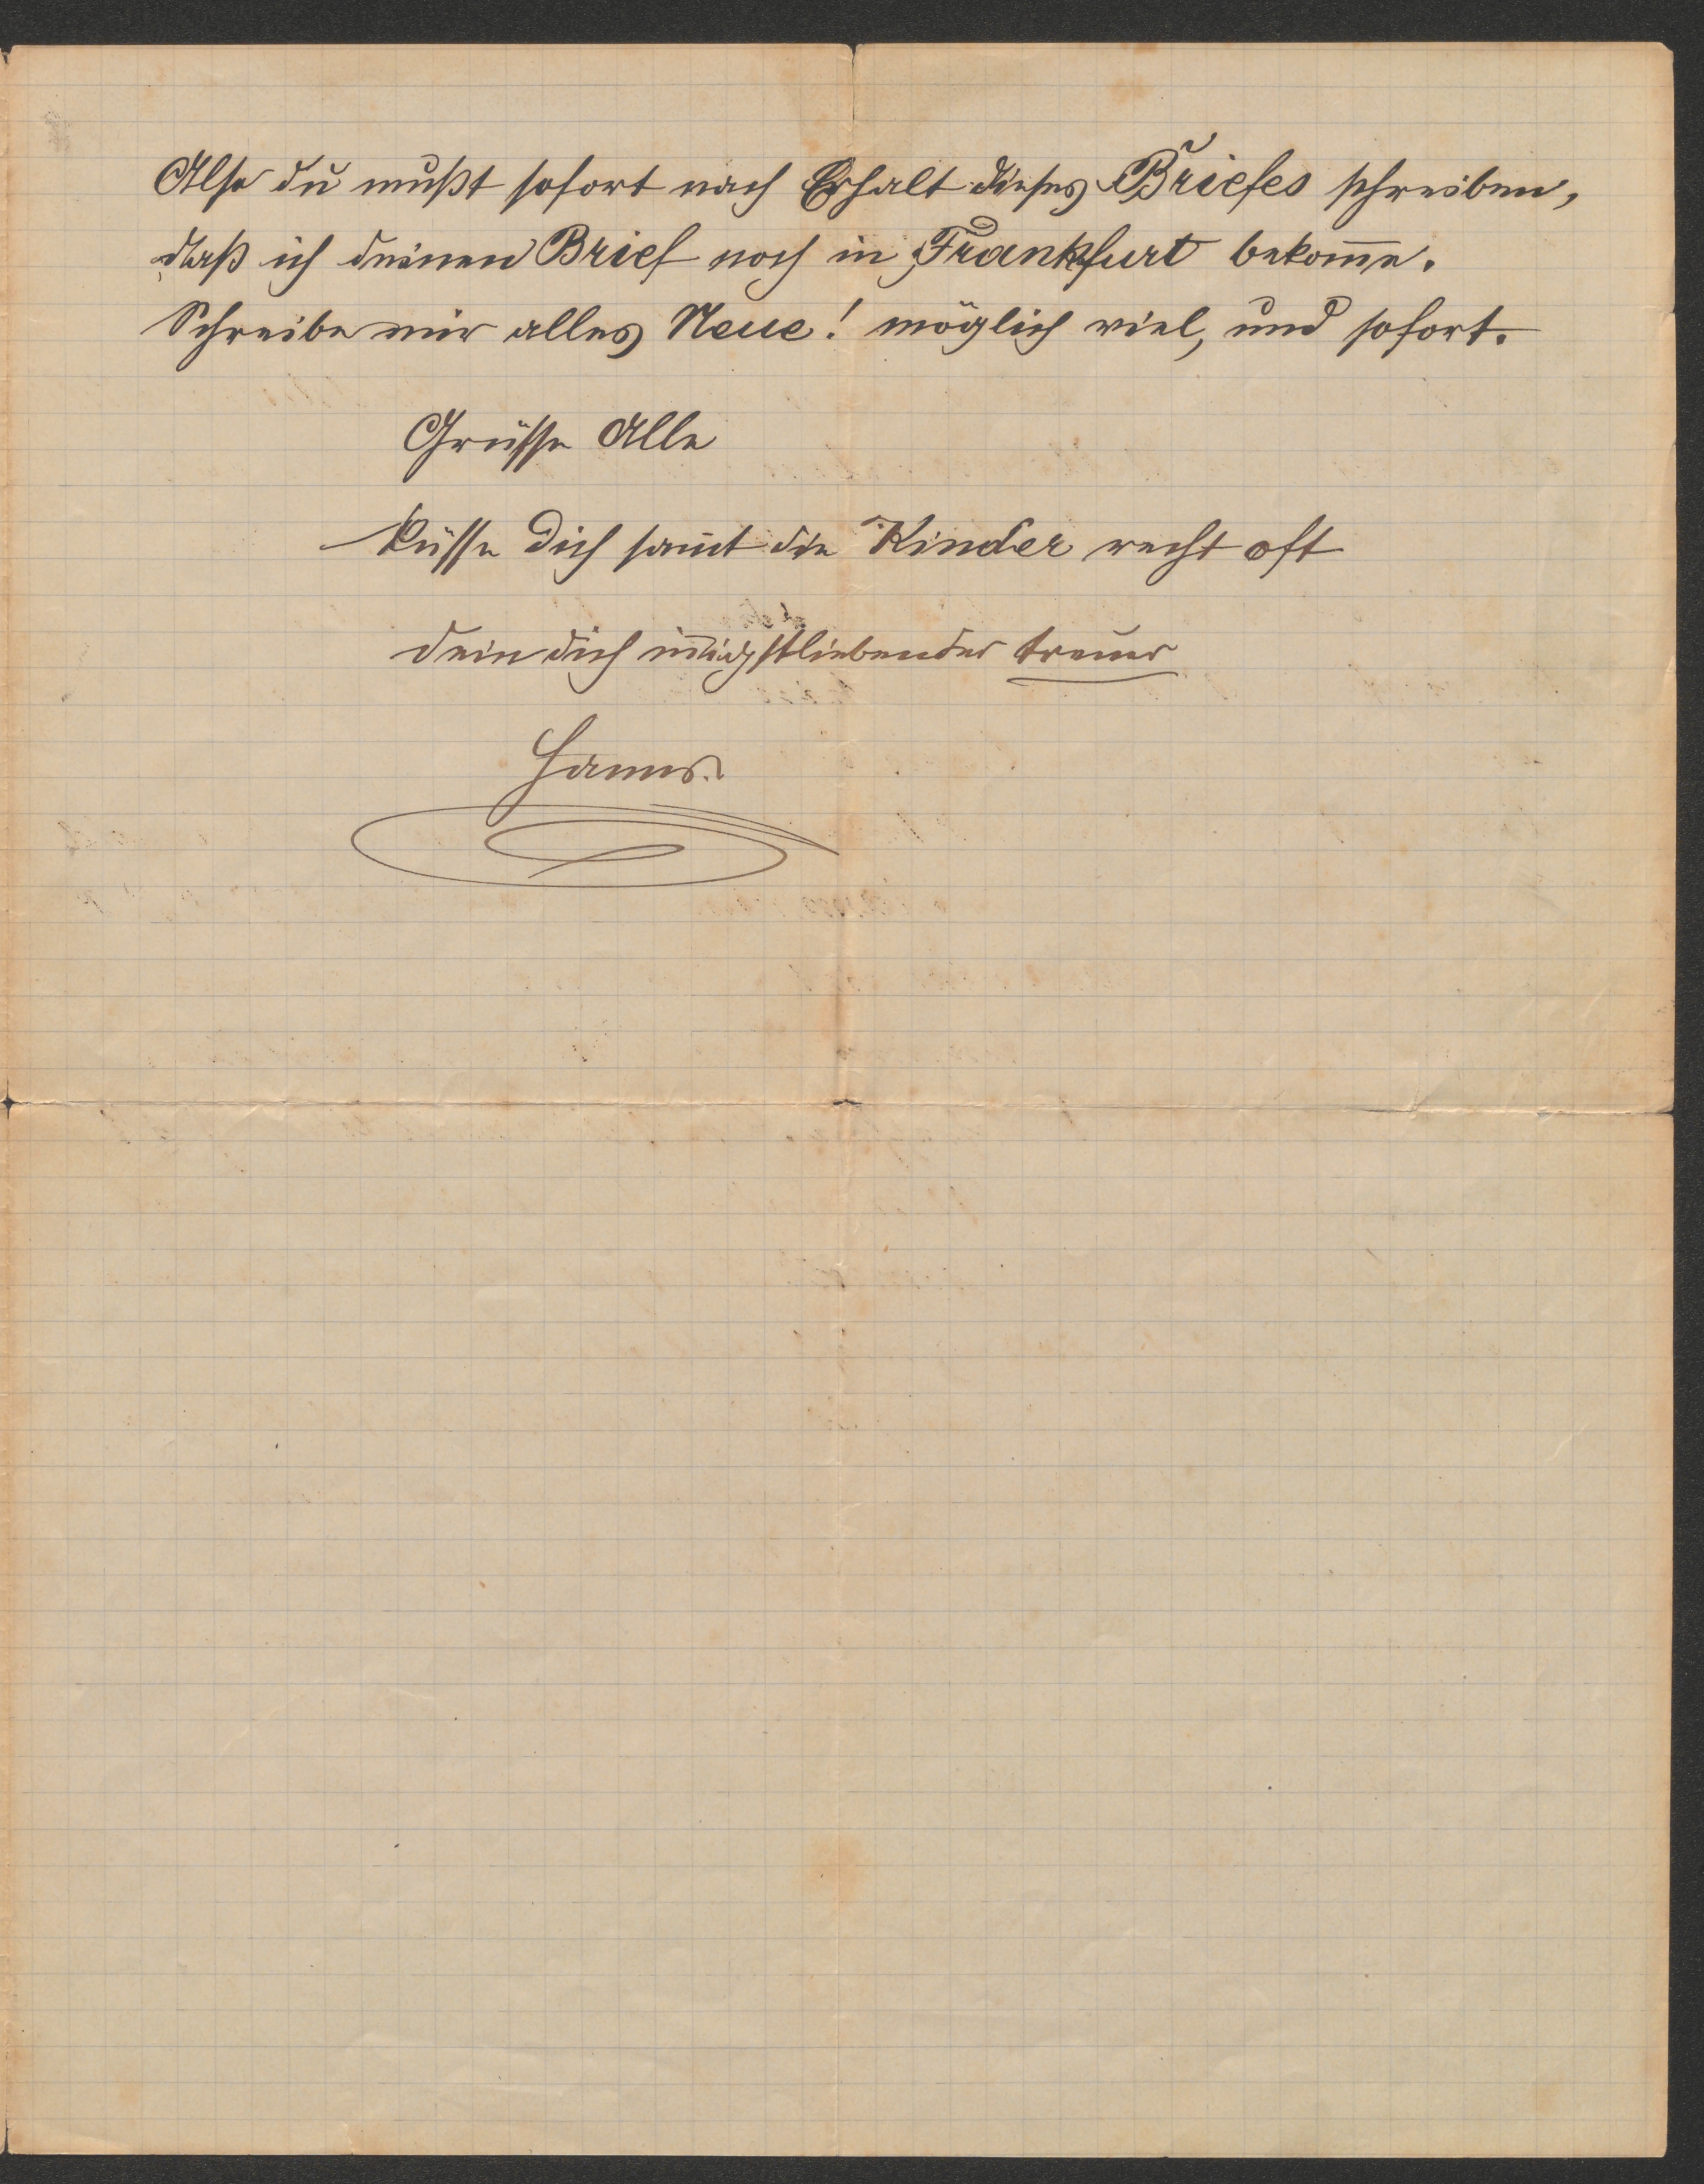 Also du mußt sofort nach Erhalt dieses Briefes schreiben,
daß ich deinen Brief noch in Frankfurt bekom̅e.
Schreibe mir alles Neue! möglich viel, und sofort.
Grüsse Alle
Küsse Dich sam̅t die Kinder recht oft
dein dich in̅igstliebender treuer
Hanns.